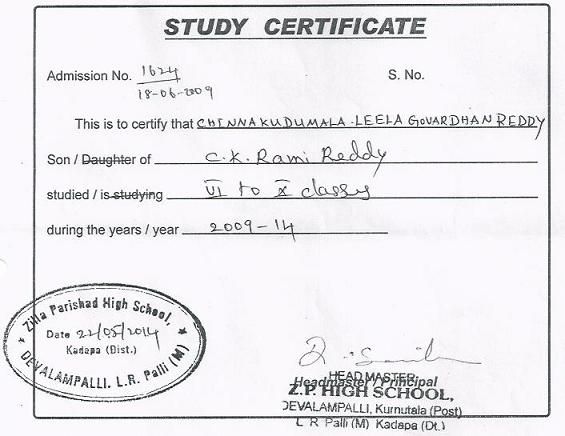 STUDY CERTIFICATE
Admission No. 1624 S. No.
18-06-2009
This is to certify that CHINNAKUDUMALA LEELA GOVARDHAN REDDY
Son / Daughter of C.K. Rami Reddy
studied / is studying VI to X classes
during the years / year 2009-14
Zilla Parishad High School,
Date 22/05/2014
Kadapa (Dist.)
DEVALAMPALLI. L.R. Palli (M)
HEAD MASTER
Headmaster / Principal
Z.P. HIGH SCHOOL,
DEVALAMPALLI, Kurnutala (Post)
L R Palli (M) Kadapa (Dt.)